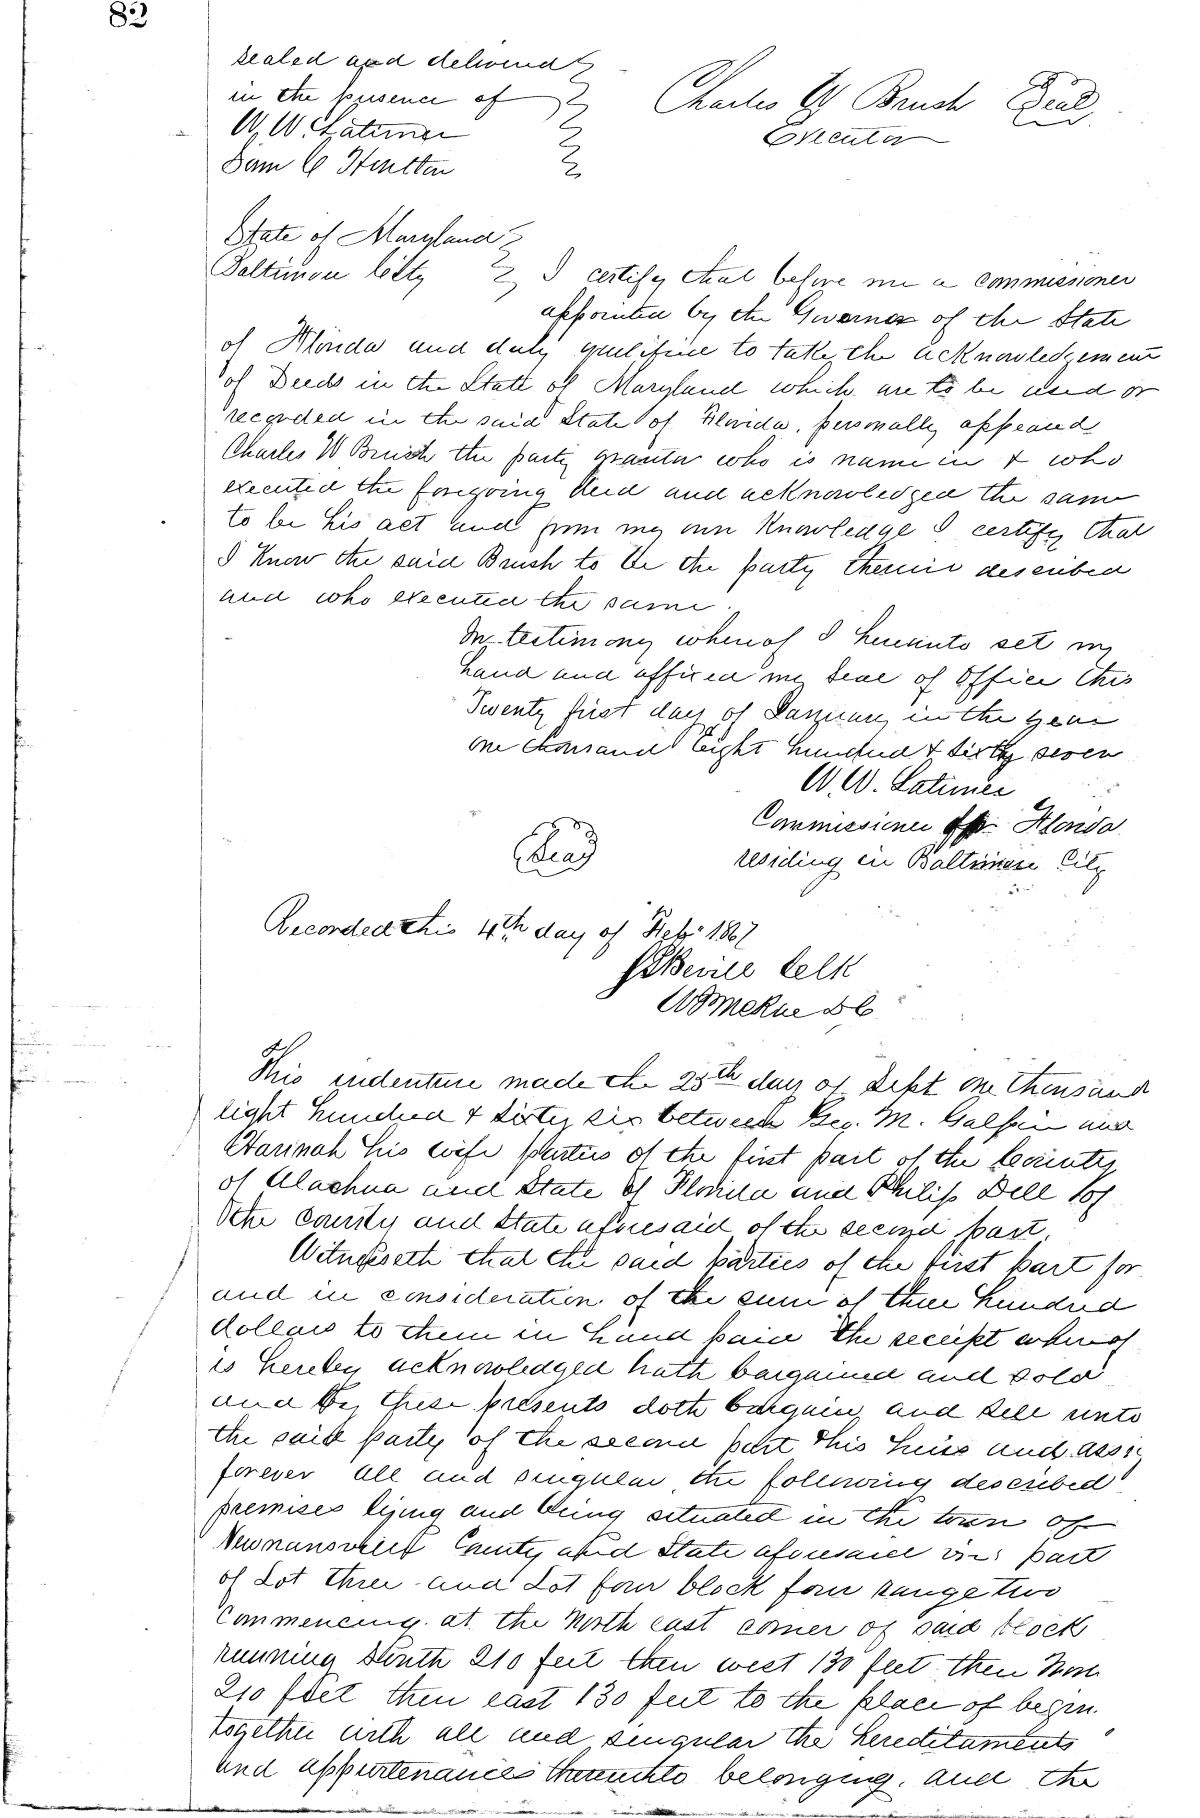 82
sealed and delivered
in the presence of
Charles W Brush Seal
W. W. Latimer
Executor
Sam C
State of Maryland
Baltimore City I certify that before me a commissioner
appointed by the Governor of the State
of Florida and duly qualified to take the acknowledgement
of Deeds in the State of Maryland which are to be used or
recorded in the said State of Florida, personally appeared
Charles W Brush the party grantor who is name in & who
executed the foregoing deed and acknowledged the same
to be his act and from my own Knowledge I certify that
I Know the said Brush to be the party therein described
and who executed the same.
In testimony whereof I hereunto set my
hand and affixed my Seal of Office this
Twenty first day of January in the year
one thousand Eight hundred & Sixty seven
W. W. Latimer
Commissioner for Florida
Seal
residing in Baltimore City
Recorded this 4th day of Feby 1867
Clk
DC
This indenture made the 25th day of Sept one thousand
Eight hundred & Sixty six between Geo. M. Galphin and
his wife parties of the first part of the County
of Alachua and State of Florida and Philip Dell of
the County and State aforesaid of the second part.
Witnesseth that the said parties of the first part for
and in consideration of the sum of three hundred
dollars to them in hand paid the receipt whereof
is hereby acknowledged hath bargained and sold
and by these presents doth bargain and sell unto
the said party of the second part his heirs and assig
forever all and singular the following described
premises lying and being situated in the town of
Newnansville County and State aforesaid viz: part
of Lot three and Lot four block four range two
Commencing at the North east corner of said block
running South 210 feet then west 130 feet then North
210 feet then east 130 feet to the place of begin.
together with all and singular the hereditaments
and appurtenances thereunto belonging, and the